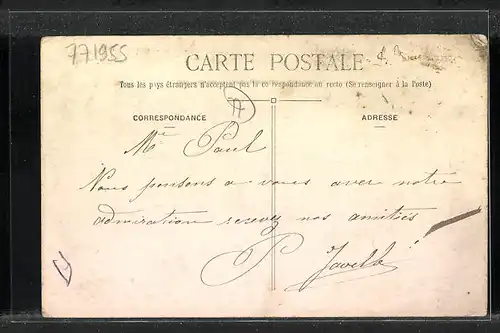 771955
CARTE POSTALE
Tous les pays étrangers n'acceptent pas la correspondance au recto (Se renseigner à la Poste)
A
CORRESPONDANCE
ADRESSE
Mr Paul
Nous pensons a vous avec notre
admiration recevez nos amitiés
P